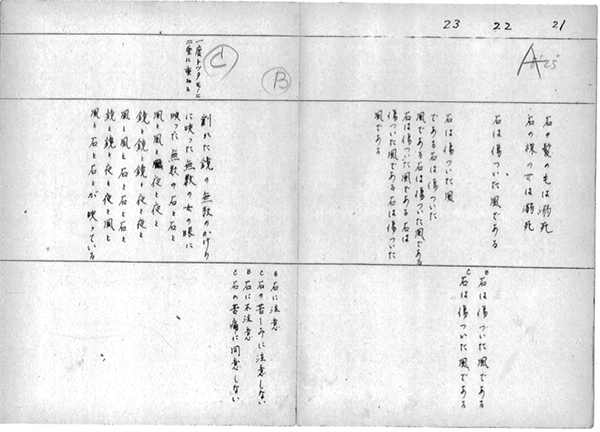 23 22 21
A
石の髪の毛は溺死
石の裸の女は溺死
石は傷ついた風である
石は傷ついた風
である石は傷ついた
風である石は傷ついた風である
石は傷ついた風である石は
傷ついた風である石は傷ついた
風である
B 石は傷ついた風である
C 石は傷ついた風である
B
C
一度トッタモノに
二重に重ねる
割れた鏡の無数のかけら
に映った無数の女の眼に
映った無数の石と石と
風と風と風夜と夜と
鏡と鏡と鏡と夜と夜と
風と風と石と石と石と
鏡と鏡と夜と夜と風と
風と石と石とが映っている
B 石に注意
C 石の苦しみに注意しない
B 石に不注意
C 石の苦痛に同意しない